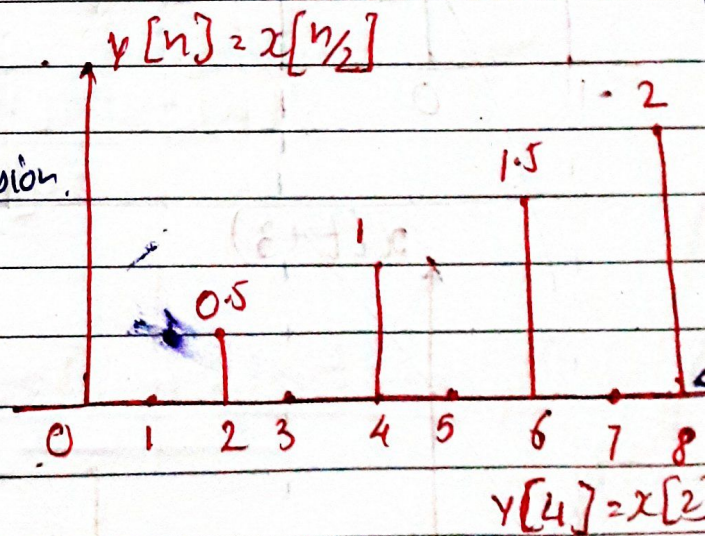 y[n] = x[n/2]
2
1.5
1
0.5
0 1 2 3 4 5 6 7 8
Y[4] = x[2